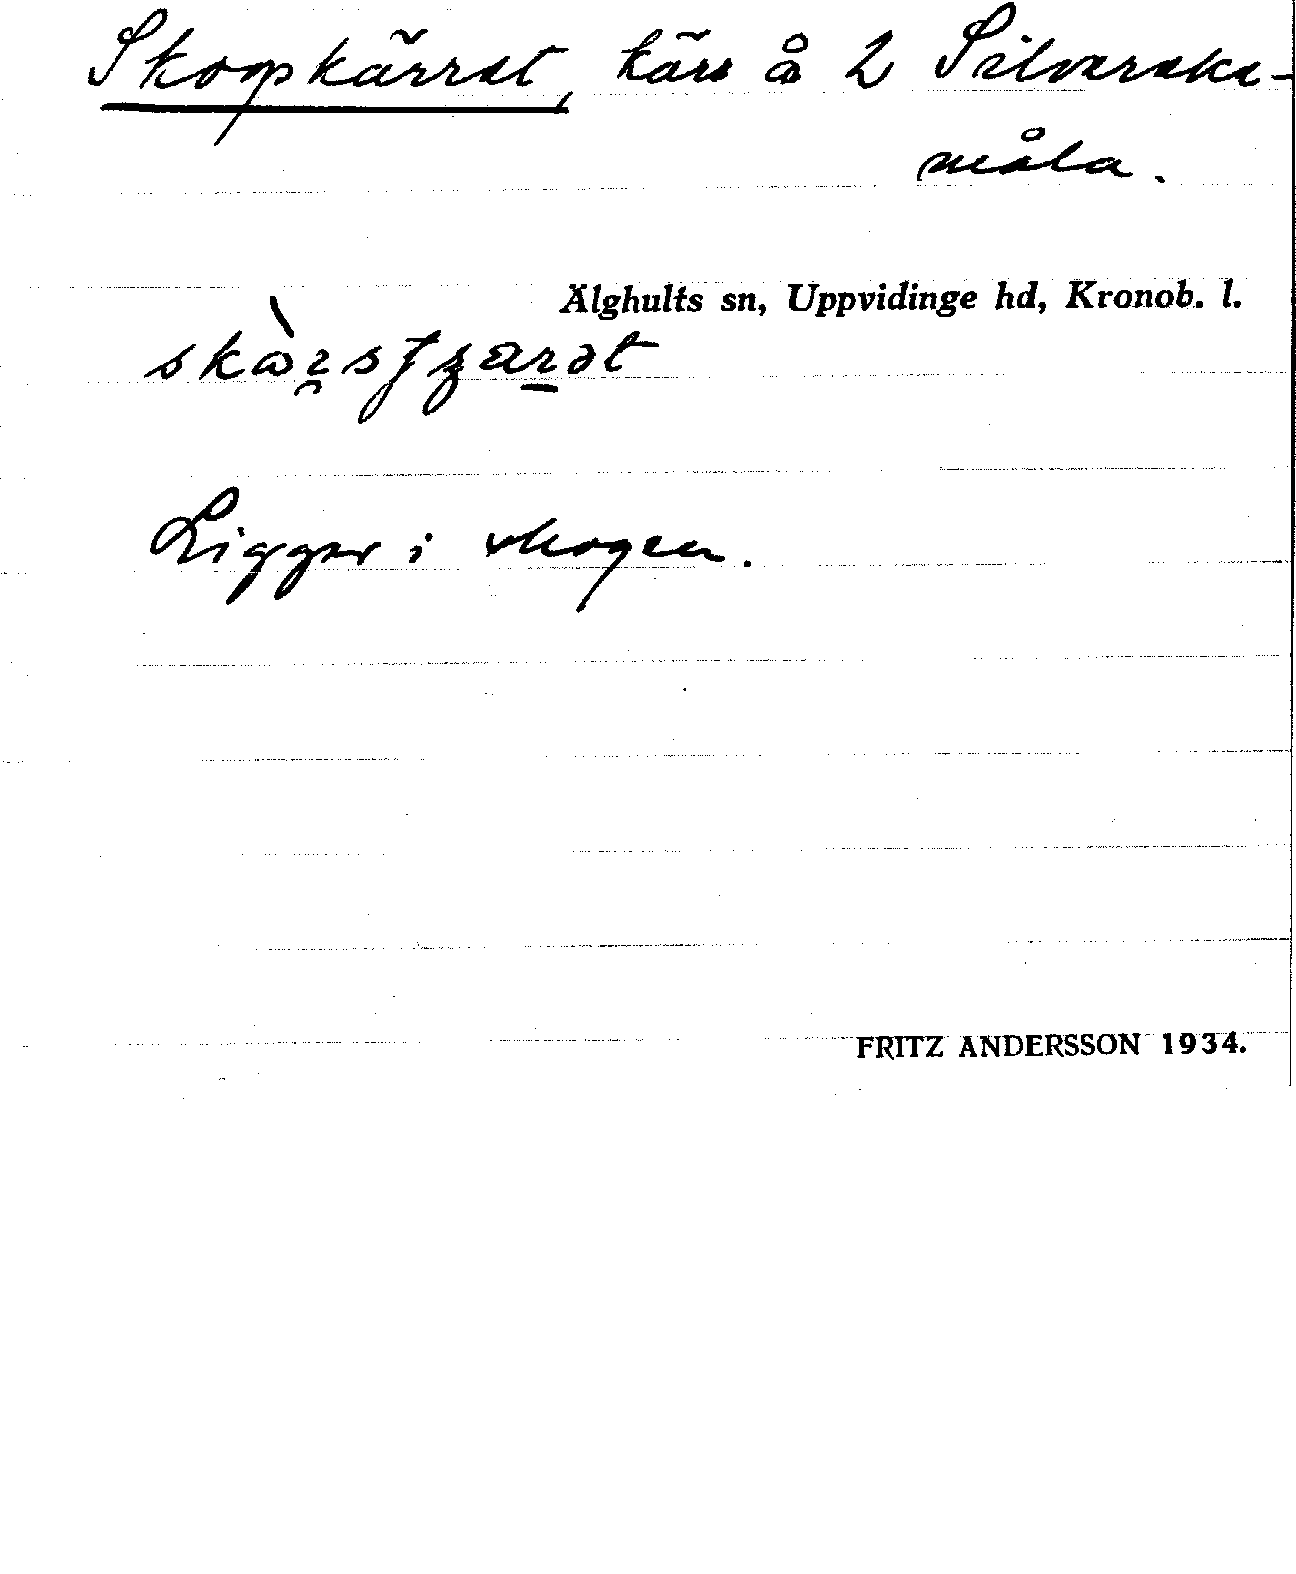 Skogskärret, kärr å 2 Silvereke-
måla.
Älghults sn, Uppvidinge hd, Kronob. l.
Ligger i skogen.
FRITZ ANDERSSON 1934.